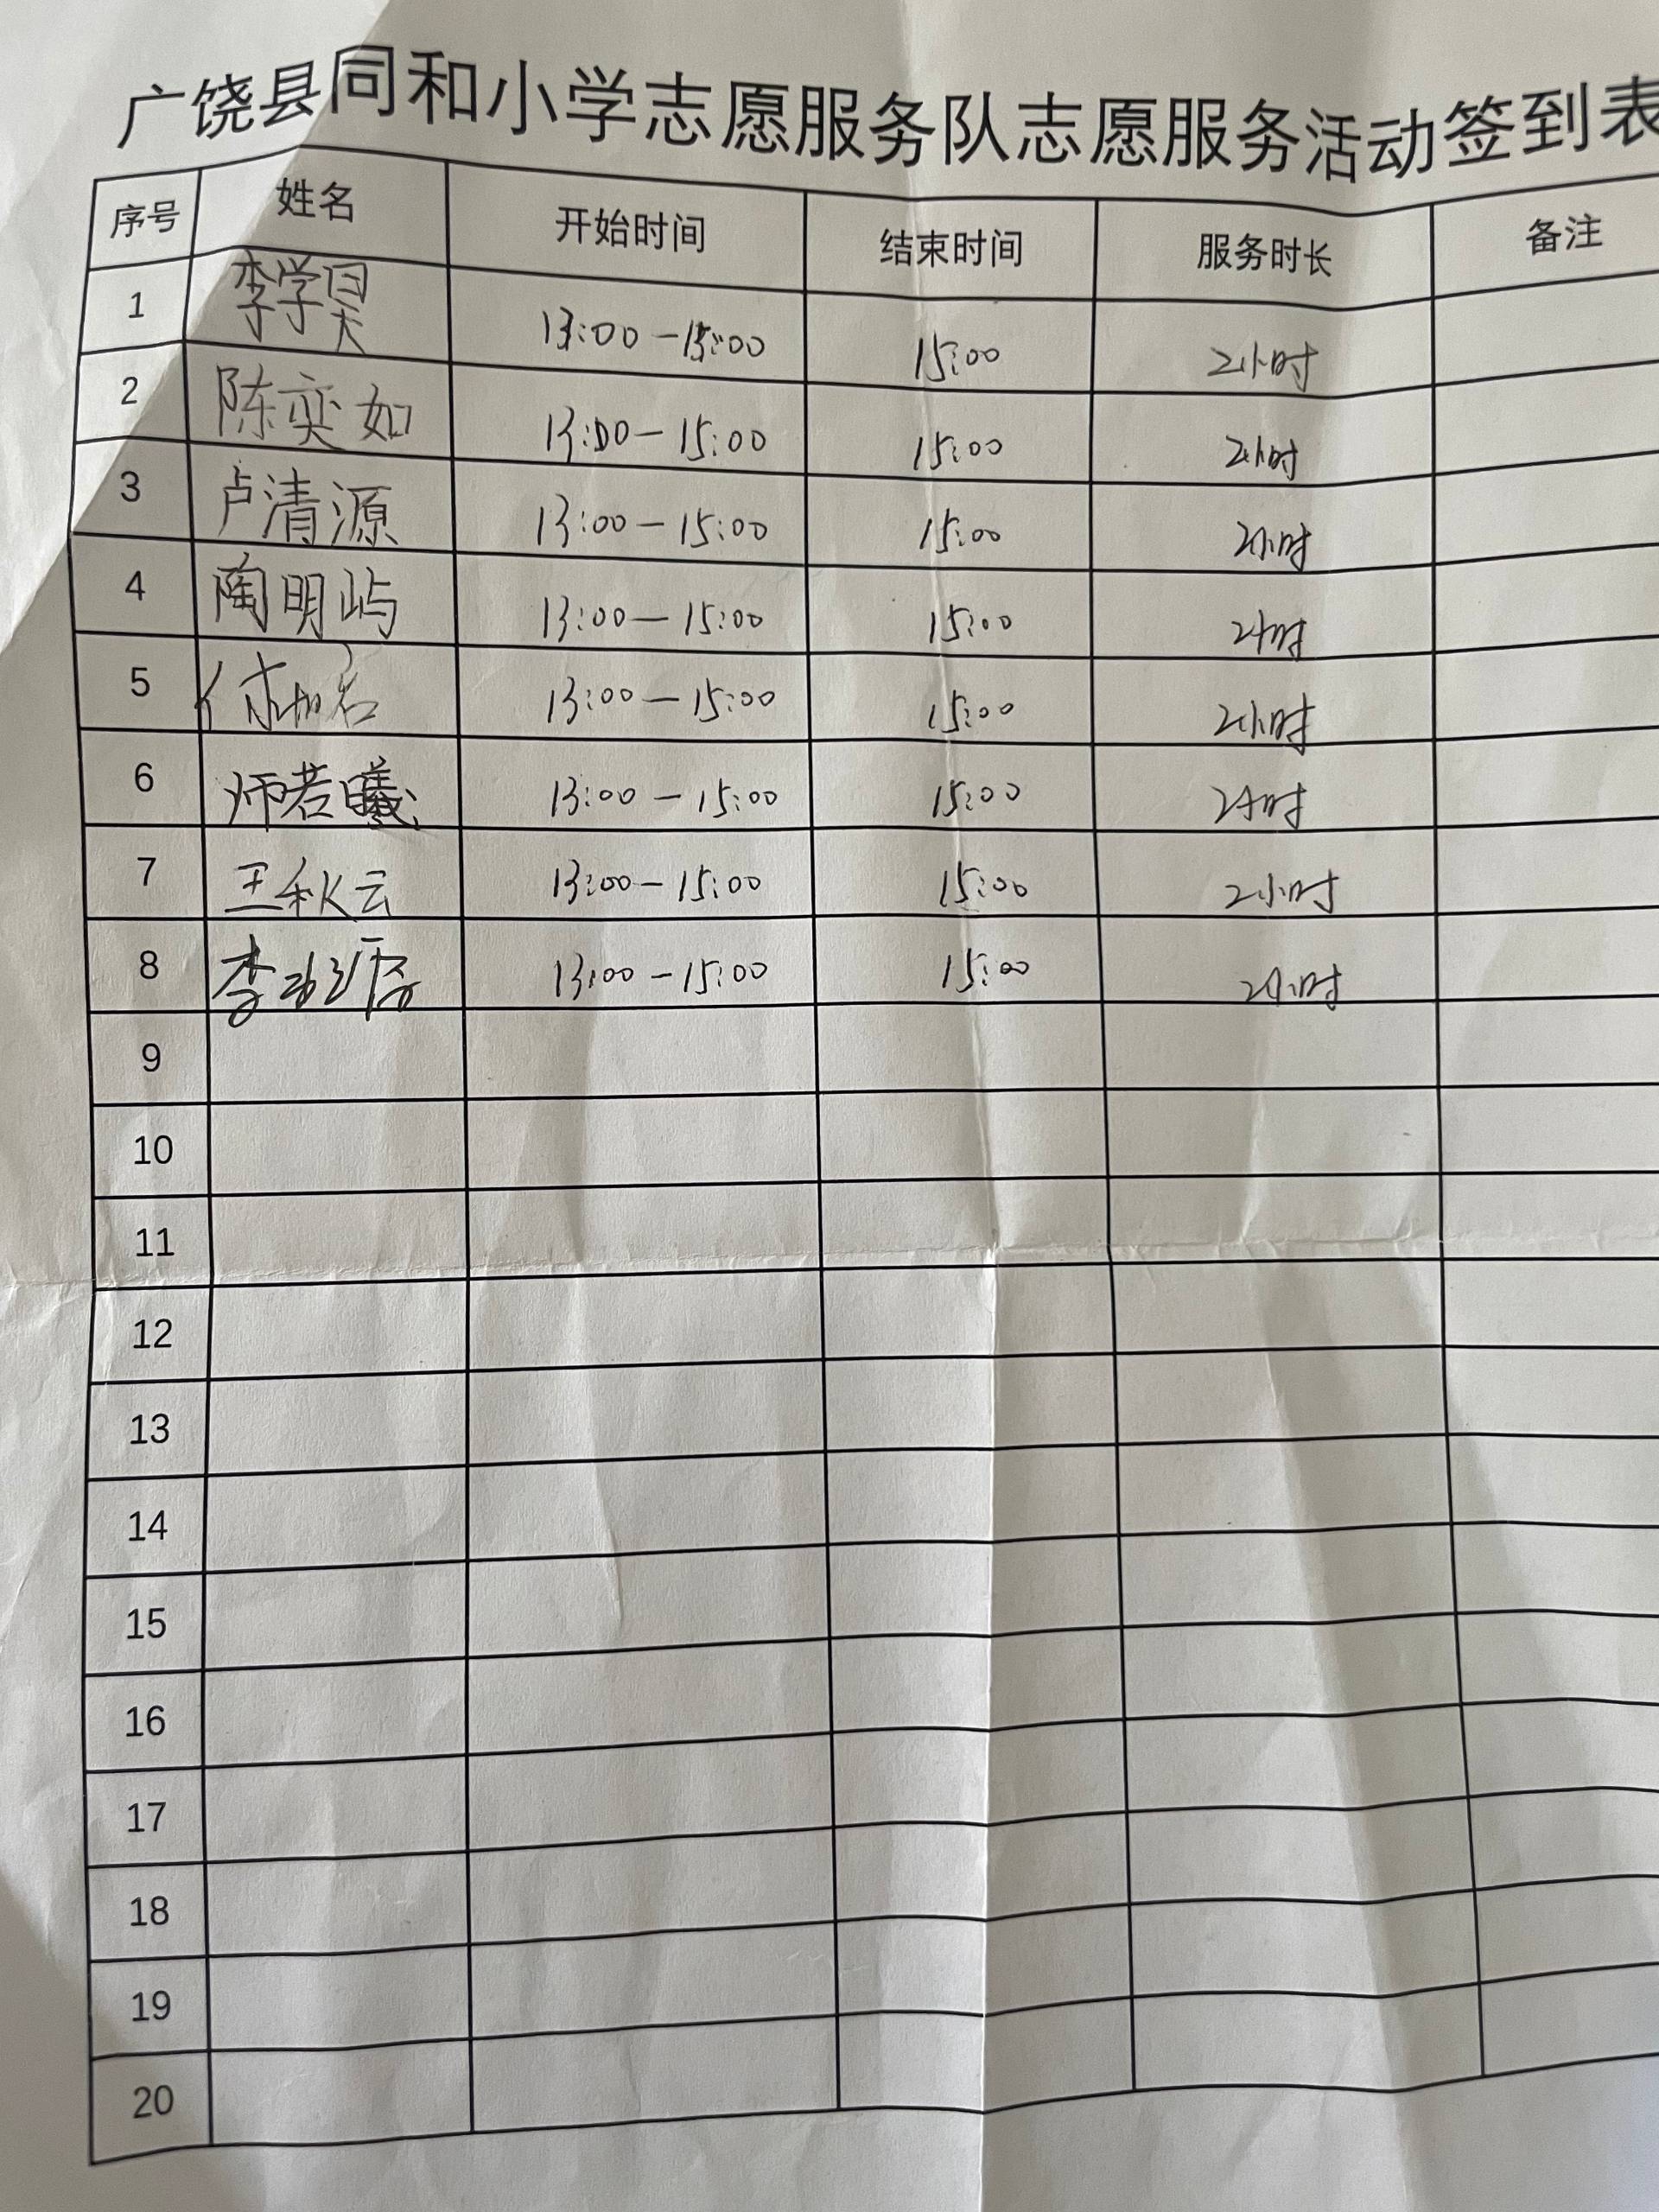 广饶县同和小学志愿服务队志愿服务活动签到表
序号 姓名 开始时间 结束时间 服务时长 备注
1 李学昊 13:00-15:00 15:00 2小时
2 陈奕如 13:00-15:00 15:00 2小时
3 卢清源 13:00-15:00 15:00 2小时
4 陶明屿 13:00-15:00 15:00 2小时
5 13:00-15:00 15:00 2小时
6 师若曦 13:00-15:00 15:00 2小时
7 王秋云 13:00-15:00 15:00 2小时
8 李 13:00-15:00 15:00 2小时
9
10
11
12
13
14
15
16
17
18
19
20